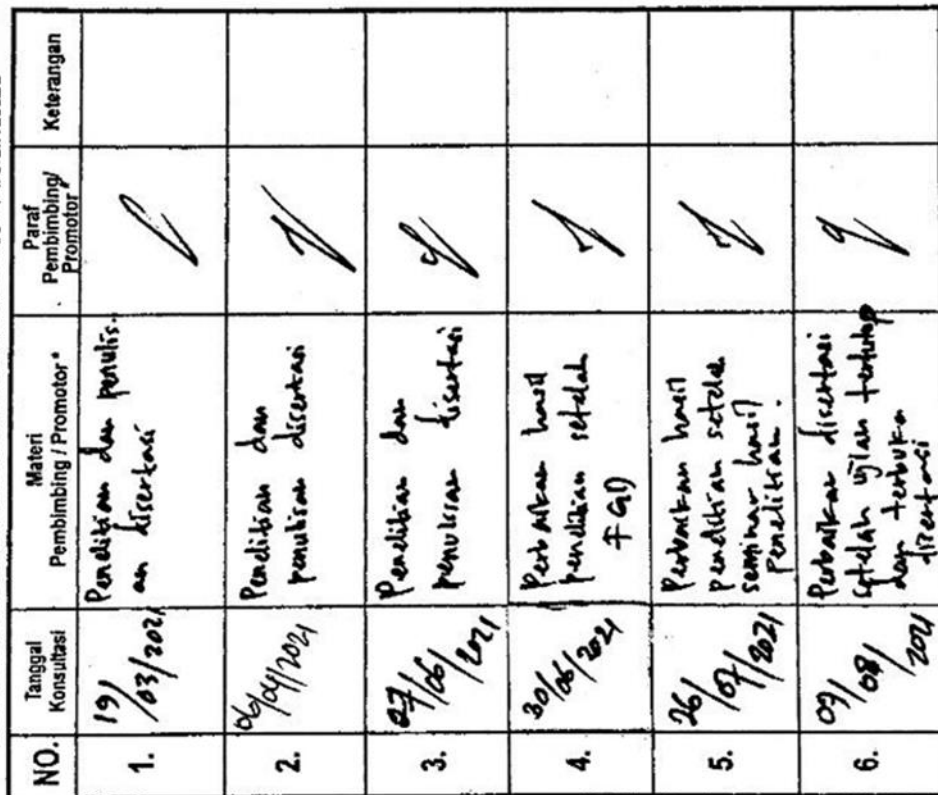 NO.
Tanggal
Konsultasi
Materi
Pembimbing / Promotor*
Paraf
Pembimbing/
Promotor*
Keterangan
1.
19/
/03/2021
Penelitian dan penulis-
an disertasi
2.
06/04/2021
Penelitian dan
penulisan disertasi
3.
27/06/
2021
Penelitian dan
penulisan disertasi
4.
30/06/2021
Perbaikan hasil
penelitian setelah
FGD
5.
26/
07/2021
Perbaikan hasil
penelitian setelah
seminar hasil
Penelitian.
6.
09/
08/
2021
Perbaikan disertasi
setelah ujian tertutup
dan terbuka
disertasi